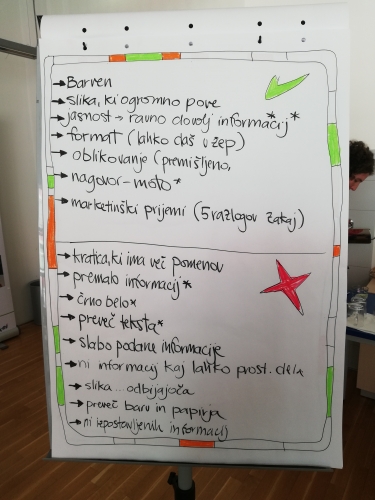 → Barven
→ slika, ki ogromno pove
→ jasnost → ravno dovolj informacij*
→ format (lahko daš v žep)
→ oblikovanje (premišljeno,
→ nagovor - moto*
→ marketinški prijemi (5 razlogov zakaj)
→ kratica, ki ima več pomenov
→ premalo informacij*
→ črno belo*
→ preveč teksta*
→ slabo podane informacije
→ ni informacij kaj lahko prost. dela
→ slika... odbijajoča
→ preveč barv in papirja
→ ni izpostavljenih informacij